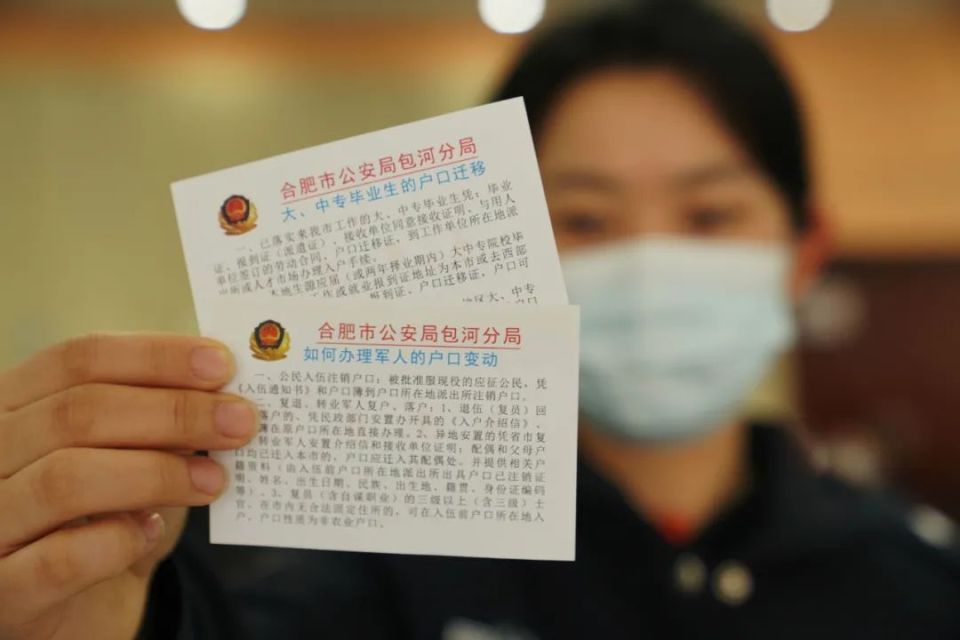 合肥市公安局包河分局
大、中专毕业生的户口迁移
一、已落实来我市工作的大、中专毕业生凭：毕业
证、报到证（派遣证）、接收单位同意接收证明、与用人
单位签订的劳动合同、户口迁移证，到工作单位所在地派
出所或人才市场办理入户手续。
本地生源应届（或两年择业期内）大中专院校毕
工作或就业报到证地址为本市或去西部
报到证、户口迁移证，户口可
地区大、中专
合肥市公安局包河分局
如何办理军人的户口变动
一、公民入伍注销户口：被批准服现役的应征公民，凭
《入伍通知书》和户口薄到户口所在地派出所注销户口。
二、复退、转业军人复户、落户：1、退伍（复员）回
落户的、凭民政部门安置办开具的《入户介绍信》、
薄在原户口所在地直接办理。2、异地安置的凭省市复
转业军人安置介绍信和接收单位证明；配偶和父母户
口均已迁入本市的、户口应迁入其配偶处。并提供相关户
籍资料（由入伍前户口所在地派出所出具户口已注销证
明、姓名、出生日期、民族、出生地、籍贯、身份证编码
等）、3、复员（含自谋职业）的三级以上（含三级）士
官、在市内无合法固定住所的，可在入伍前户口所在地入
户，户口性质为非农业户口。